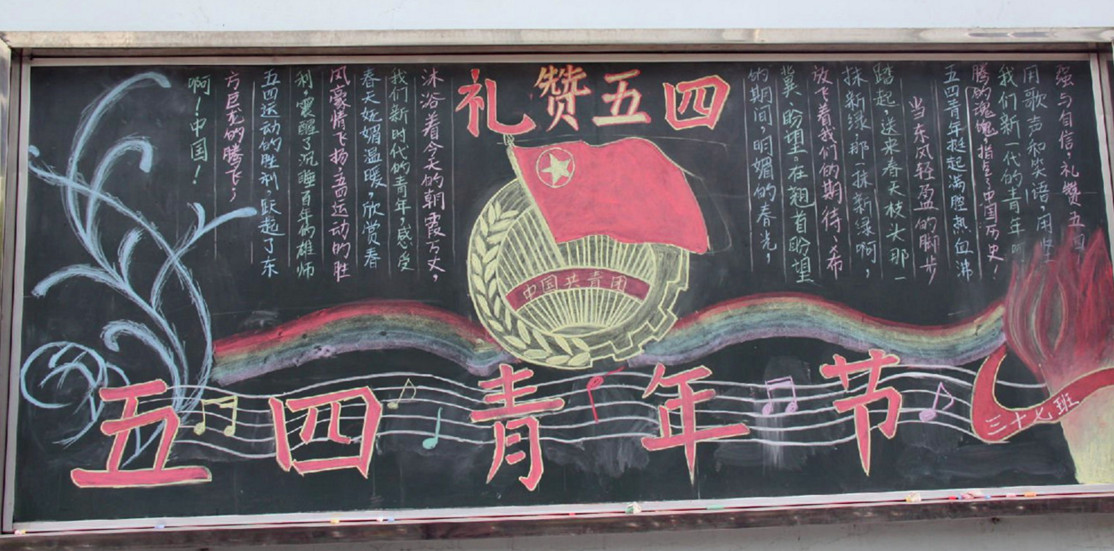 礼赞五四
强与自信,礼赞五四
用歌声和笑语,用
我们新一代的青年啊
腾的魂魄,指点中国历史!
五四青年挺起满腔热血沸
当东风轻盈的脚步
踏起送来春天枝头那一
抹新绿那一抹新绿啊,
放飞着我们的期待、希
冀、盼望。在翘首盼望
的期间,明媚的春光,
沐浴着今天的朝霞万丈,
我们新时代的青年感受
春天妩媚温暖欣赏春
风豪情飞扬.五四运动的胜
利震醒了沉睡百年的雄师
五四运动的胜利跃起了东
方巨龙的腾飞,
啊!中国!
中国共青团
五四青年节
三十七班